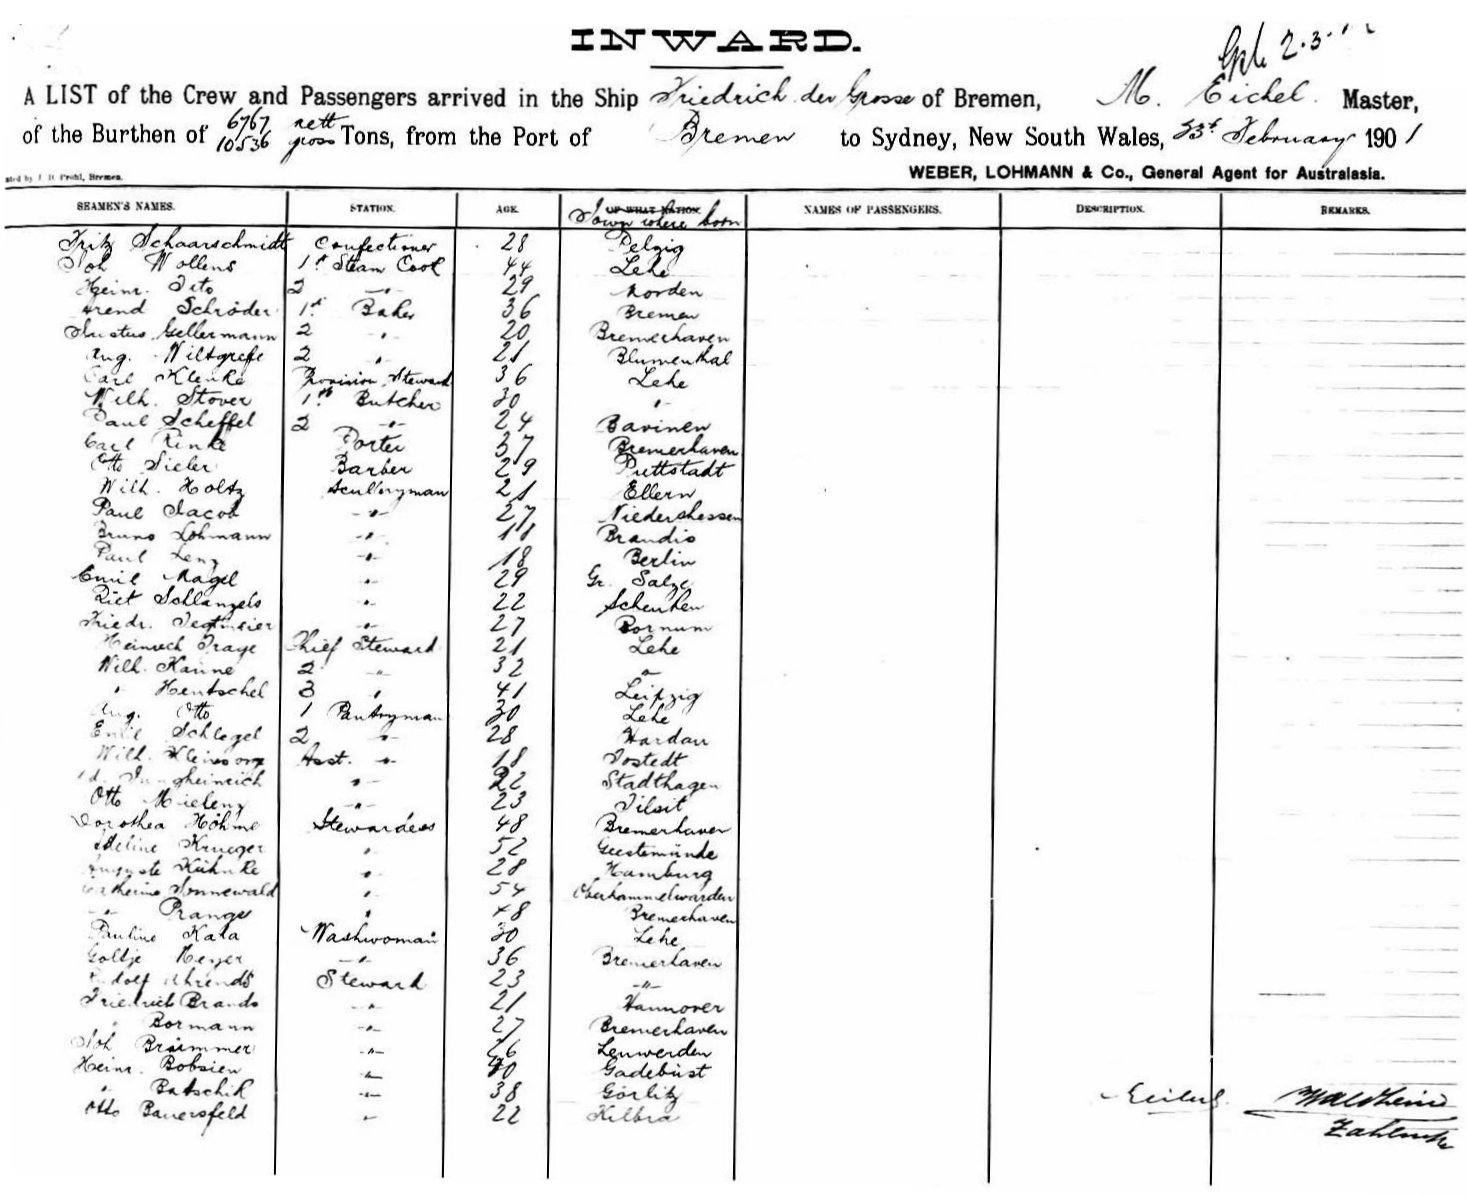 INWARD.
2.3.
A LIST of the Crew and Passengers arrived in the Ship Friedrich der Grosse of Bremen, M. Eichel. Master,
of the Burthen of 6767 nett 10536 gross Tons, from the Port of Bremen to Sydney, New South Wales, 23d February 1901
Bremen. WEBER, LOHMANN & Co., General Agent for Australasia.
SEAMEN'S NAMES. STATION. AGE. OF WHAT NATION. Town where born NAMES OF PASSENGERS. DESCRIPTION. REMARKS.
Fritz Schaarschmidt Confectioner 28 Pelzig
Joh Wollens 1st Steam Cook 44 Lehe
Heinr. Tito 2 -"- 29 Norden
Arend Schröder 1st Baker 36 Bremen
Justus Gellermann 2 " 20 Bremerhaven
Aug. Wiltgrefe 2 " 21 Blumenthal
Carl Klenke Provision Steward 36 Lehe
Wilh. Stover 1st Butcher 30 "
Paul Scheffel 2 -"- 24 Bavinen
Carl Rinke Porter 37 Bremerhaven
Otto Sieler Barber 29 Puttstadt
Wilh. Holtz Sculleryman 21 Ellern
Paul Jacob -"- 27 Niedershessen
Bruno Lohmann -"- Brandis
Paul Lenz -"- 18 Berlin
Emil Nagel -"- 29 Gr. Salze
Schlangels -"- 22 Schenken
Friedr. Tegtmeier -"- 27 Bornum
Heinrich Trage Chief Steward 21 Lehe
Wilh. Kanne 2 -"- 32 "
" Hentschel 3 " 41 Leipzig
Aug. Otto 1 Pantryman 30 Lehe
Emil Schlegel 2 -"- 28 Hardau
Wilh. Asst. -"- 18 Tostedt
Jungheinrich -"- 22 Stadthagen
Otto Mielenz -"- 23 Tilsit
Dorothea Höhme Stewardess 48 Bremerhaven
Adeline Krueger " 52 Geestemünde
Auguste Kühnke " 28 Hamburg
Catherine Sonnewald " 54 Oberhammelwarden
-"- Prange " 48 Bremerhaven
Pauline Kala Washwoman 30 Lehe
Goltje Meyer -"- 36 Bremerhaven
Rudolf Ahrends Steward 23 -"-
Friedrich Brands -"- 21 Hannover
" Bormann -"- 27 Bremerhaven
Joh Brümmer -"- 26 Leuwerden
Heinr. Bobsien -"- 40 Gadebüst
" Batschik -"- 38 Görlitz
Otto Bauersfeld " 22 Kelbra